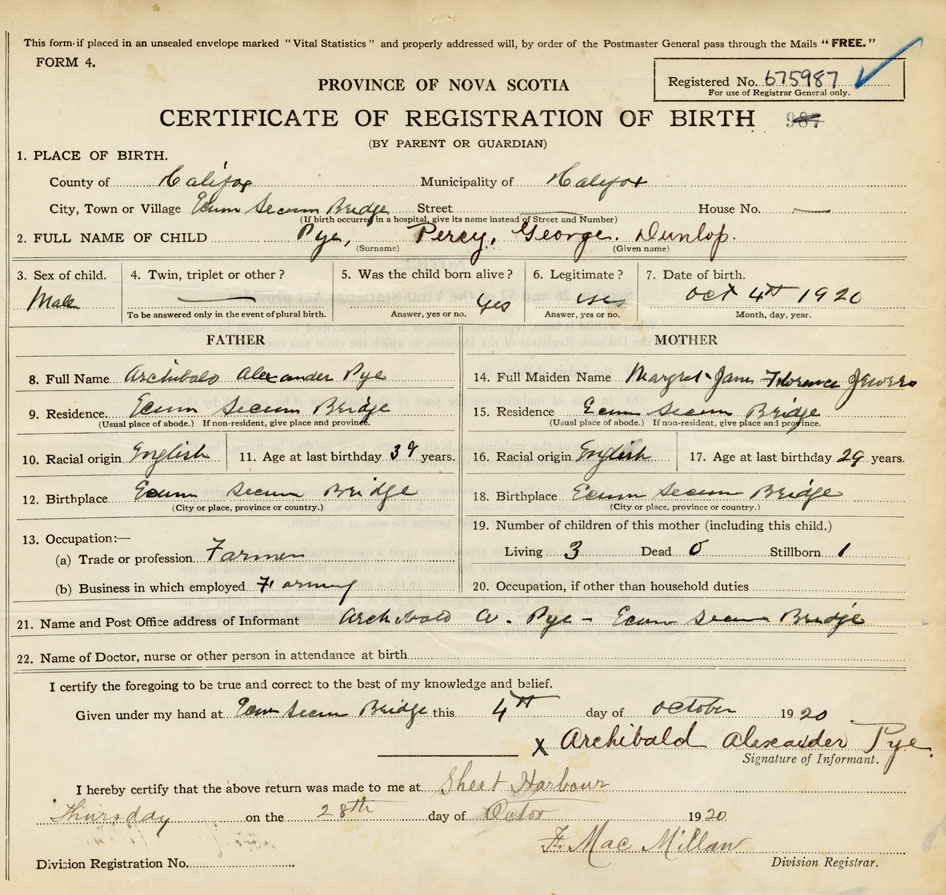 This form if placed in an unsealed envelope marked "Vital Statistics" and properly addressed will, by order of the Postmaster General pass through the Mails "FREE."
FORM 4.
PROVINCE OF NOVA SCOTIA
Registered No. 675987
For use of Registrar General only.
CERTIFICATE OF REGISTRATION OF BIRTH 987
(BY PARENT OR GUARDIAN)
1. PLACE OF BIRTH.
County of Halifax Municipality of Halifax
City, Town or Village Ecum Secum Bridge Street House No.
(If birth occurred in a hospital, give its name instead of Street and Number)
2. FULL NAME OF CHILD Pye, Percy, George. Dunlop.
(Surname) (Given name)
3. Sex of child. 4. Twin, triplet or other? 5. Was the child born alive? 6. Legitimate? 7. Date of birth.
Male Yes Yes Oct 4th 1920
To be answered only in the event of plural birth. Answer, yes or no. Answer, yes or no. Month, day, year.
FATHER MOTHER
8. Full Name Archibald Alexander Pye 14. Full Maiden Name Margret Jane Florence Jewers
9. Residence. Ecum Secum Bridge 15. Residence Ecum Secum Bridge
(Usual place of abode.) If non-resident, give place and province. (Usual place of abode.) If non-resident, give place and province.
10. Racial origin English 11. Age at last birthday 39 years. 16. Racial origin English 17. Age at last birthday 29 years.
12. Birthplace Ecum Secum Bridge 18. Birthplace Ecum Secum Bridge
(City or place, province or country.) (City or place, province or country.)
13. Occupation:— 19. Number of children of this mother (including this child.)
(a) Trade or profession Farmer Living 3 Dead 0 Stillborn 1
(b) Business in which employed Farming 20. Occupation, if other than household duties
21. Name and Post Office address of Informant Archibald A. Pye - Ecum Secum Bridge
22. Name of Doctor, nurse or other person in attendance at birth
I certify the foregoing to be true and correct to the best of my knowledge and belief.
Given under my hand at Ecum Secum Bridge this 4th day of October 1920
X Archibald Alexander Pye
Signature of Informant.
I hereby certify that the above return was made to me at Sheet Harbour
Thursday on the 28th day of Octor 1920
F. MacMillan
Division Registration No. Division Registrar.